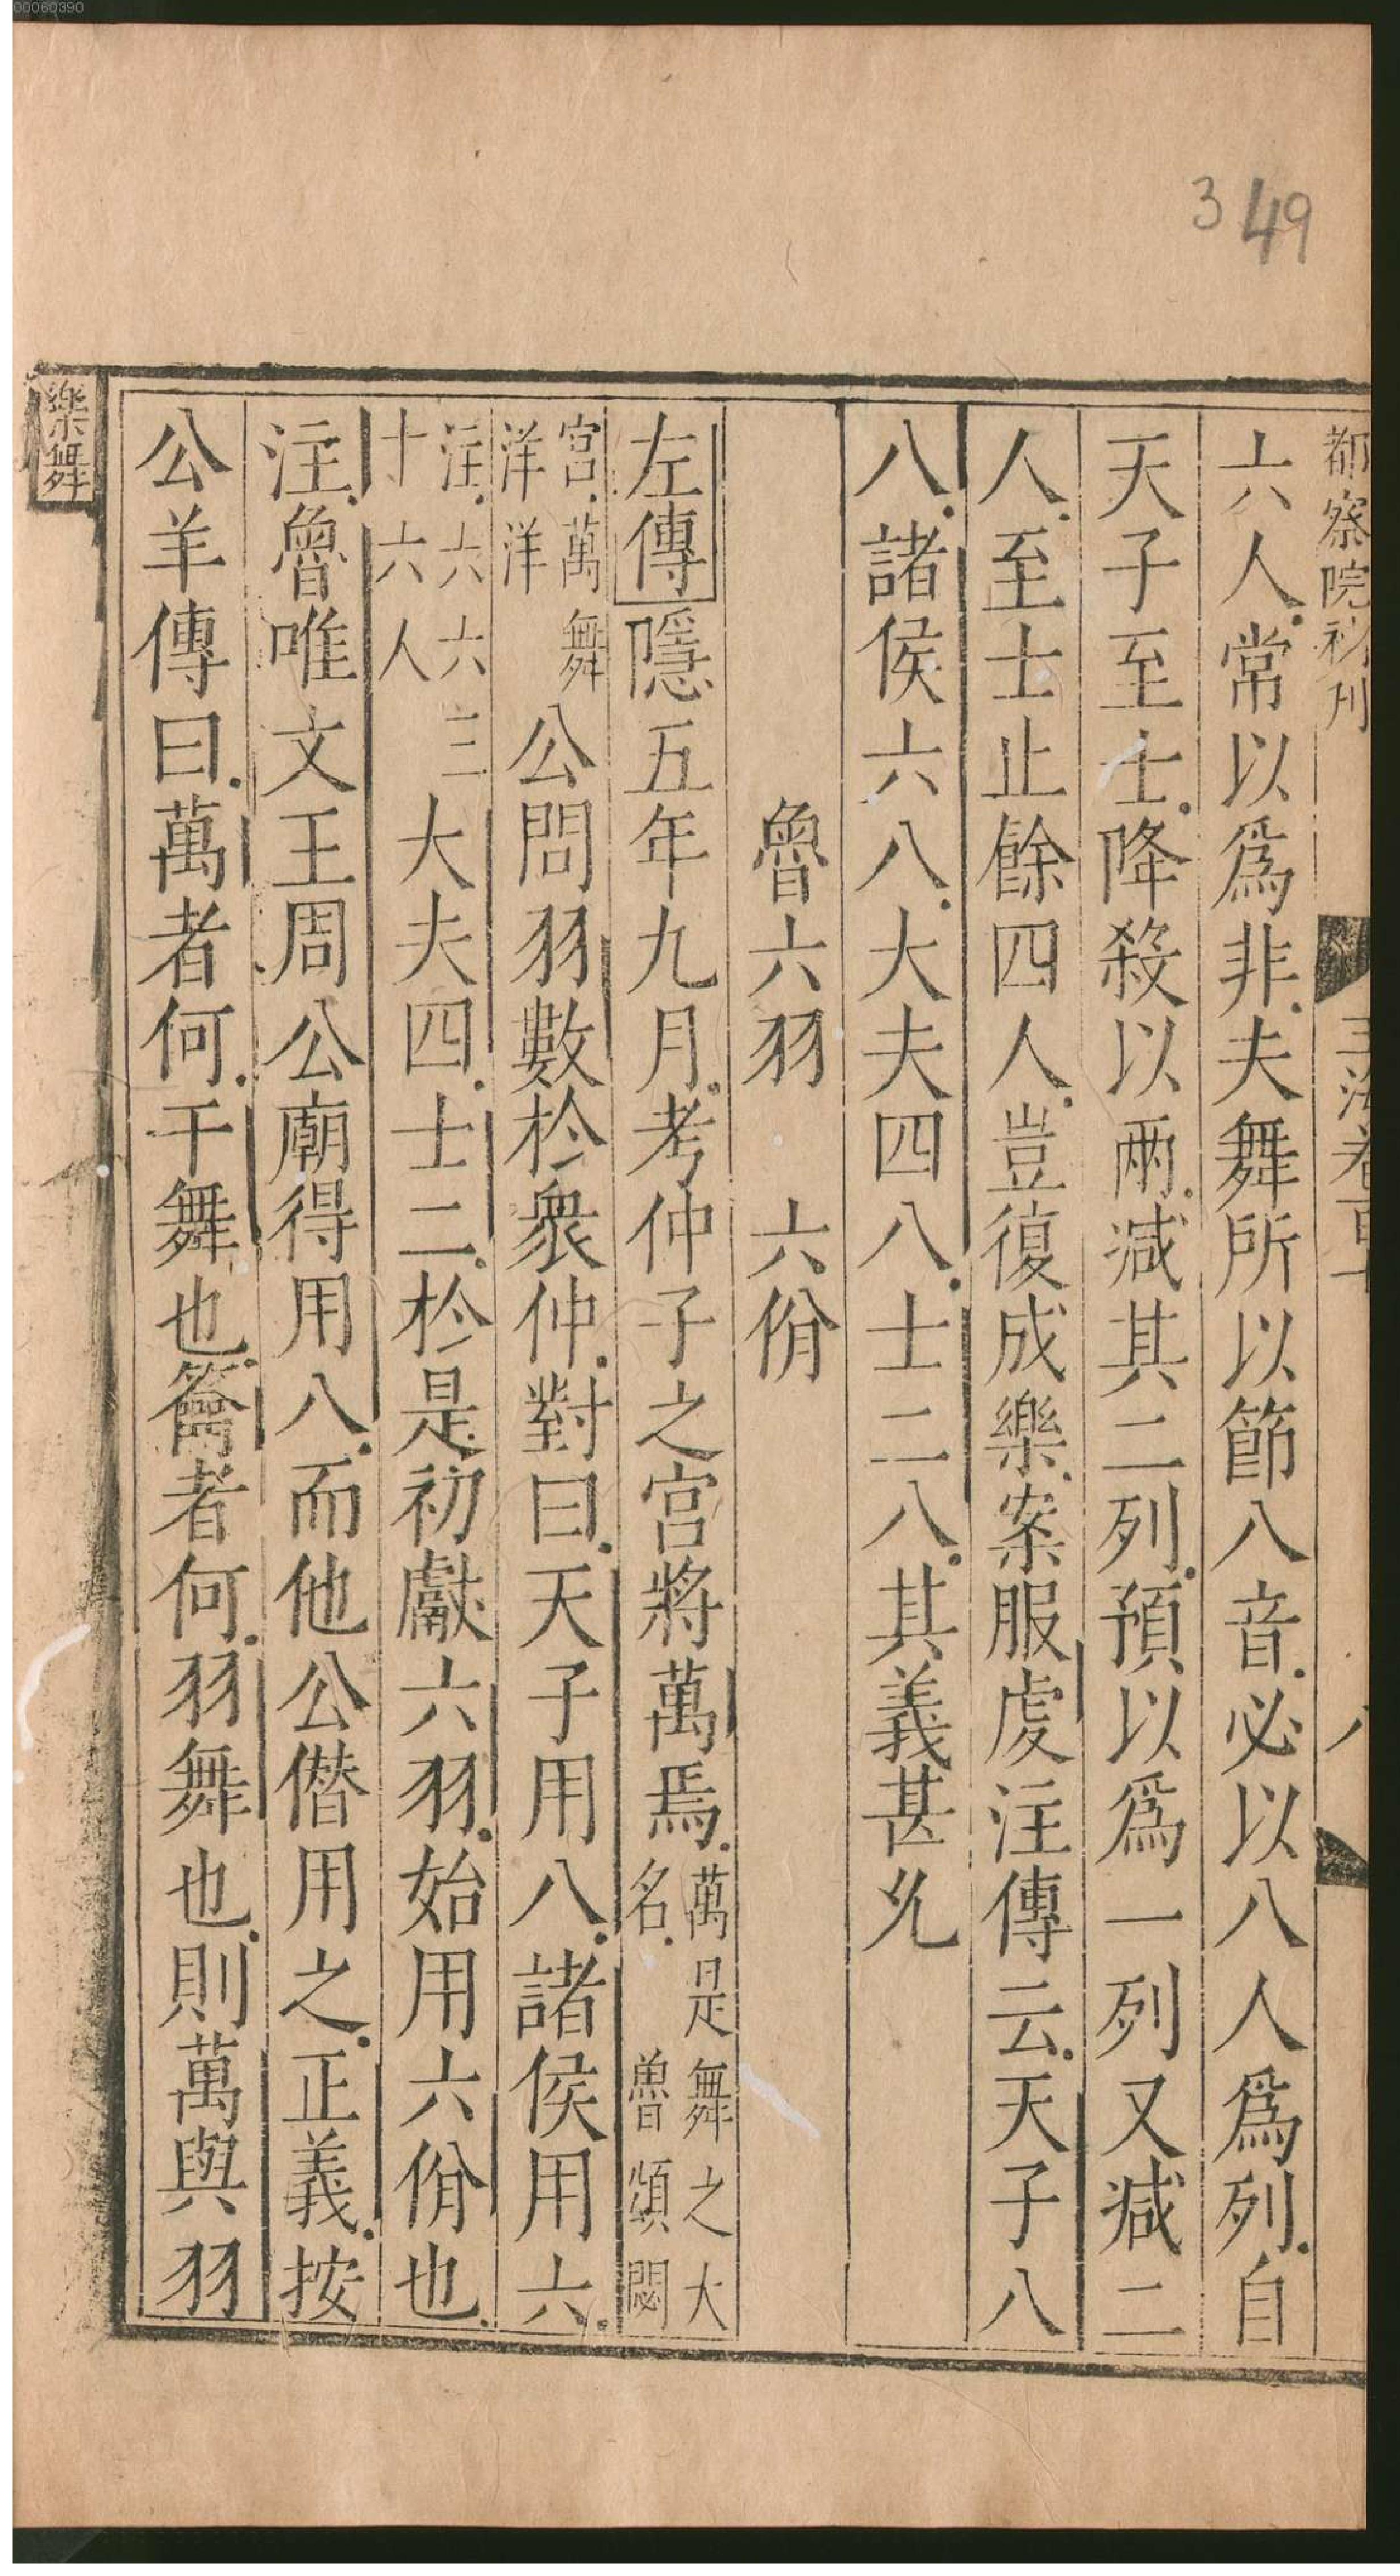 00060390
349
都察院初刊
玉海卷百十
八
六人常以爲非夫舞所以節八音必以八人爲列自
天子至士降殺以兩减其二列預以爲一列又减二
人至士止餘四人豈復成樂案服虔注傳云天子八
八諸侯六八大夫四八士二八其義甚允
魯六羽 六佾
左傳隱五年九月考仲子之宮將萬焉萬是舞之大名魯頌閟
宮萬舞洋洋公問羽數於衆仲對曰天子用八諸侯用六
注六六三十六人大夫四士二於是初獻六羽始用六佾也
注魯唯文王周公廟得用八而他公僣用之正義按
公羊傳曰萬者何干舞也籥者何羽舞也則萬與羽
樂舞